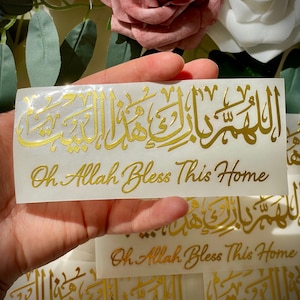 اللهُمَّ بَارِك هٰذَا البَيْت
Oh Allah Bless This Home
اللهُمَّ بَارِك
Oh Allah Bless This Home